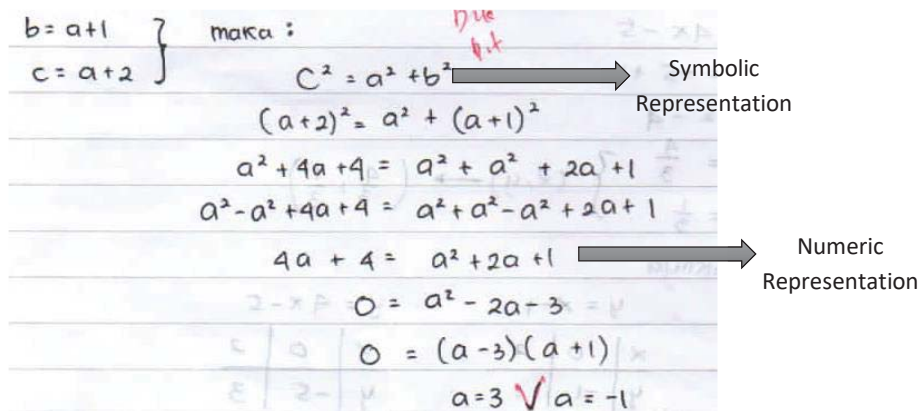 b = a+1 } maka :
c = a+2
C² = a² + b²
Symbolic
Representation
(a+2)² = a² + (a+1)²
a² + 4a + 4 = a² + a² + 2a + 1
a² - a² + 4a + 4 = a² + a² - a² + 2a + 1
4a + 4 = a² + 2a + 1
Numeric
Representation
0 = a² - 2a - 3
0 = (a-3)(a+1)
a = 3 V a = -1